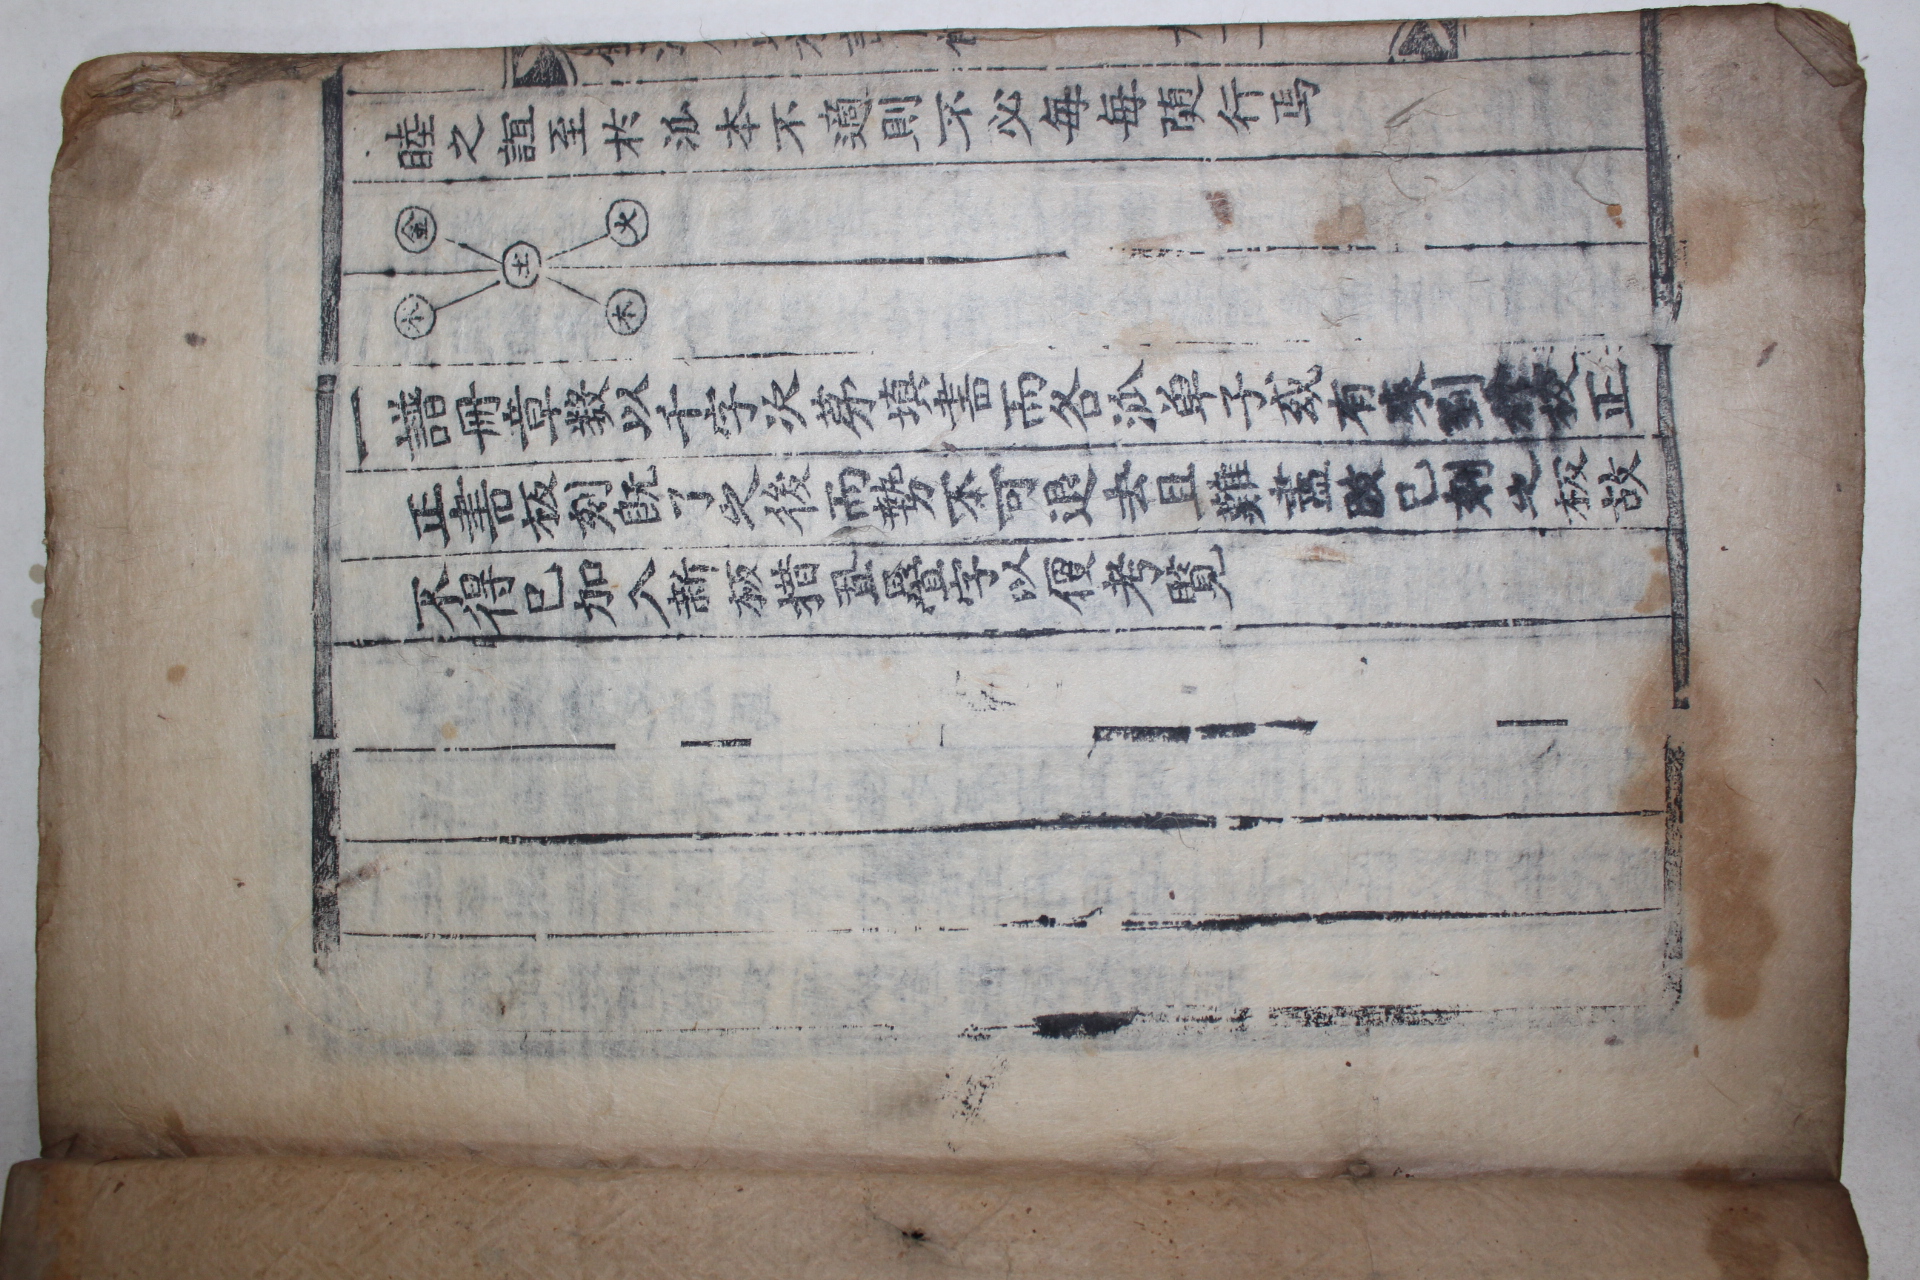 睦之誼至於泒本不適則不必每每隨行焉
金 火
土
水 木
一譜冊章數以千字次第填書而各泒單子或有未到正
正書板刻旣了之後而勢不可退去且難盡改已刻之板故
不得已加入新板疊字以便考覽